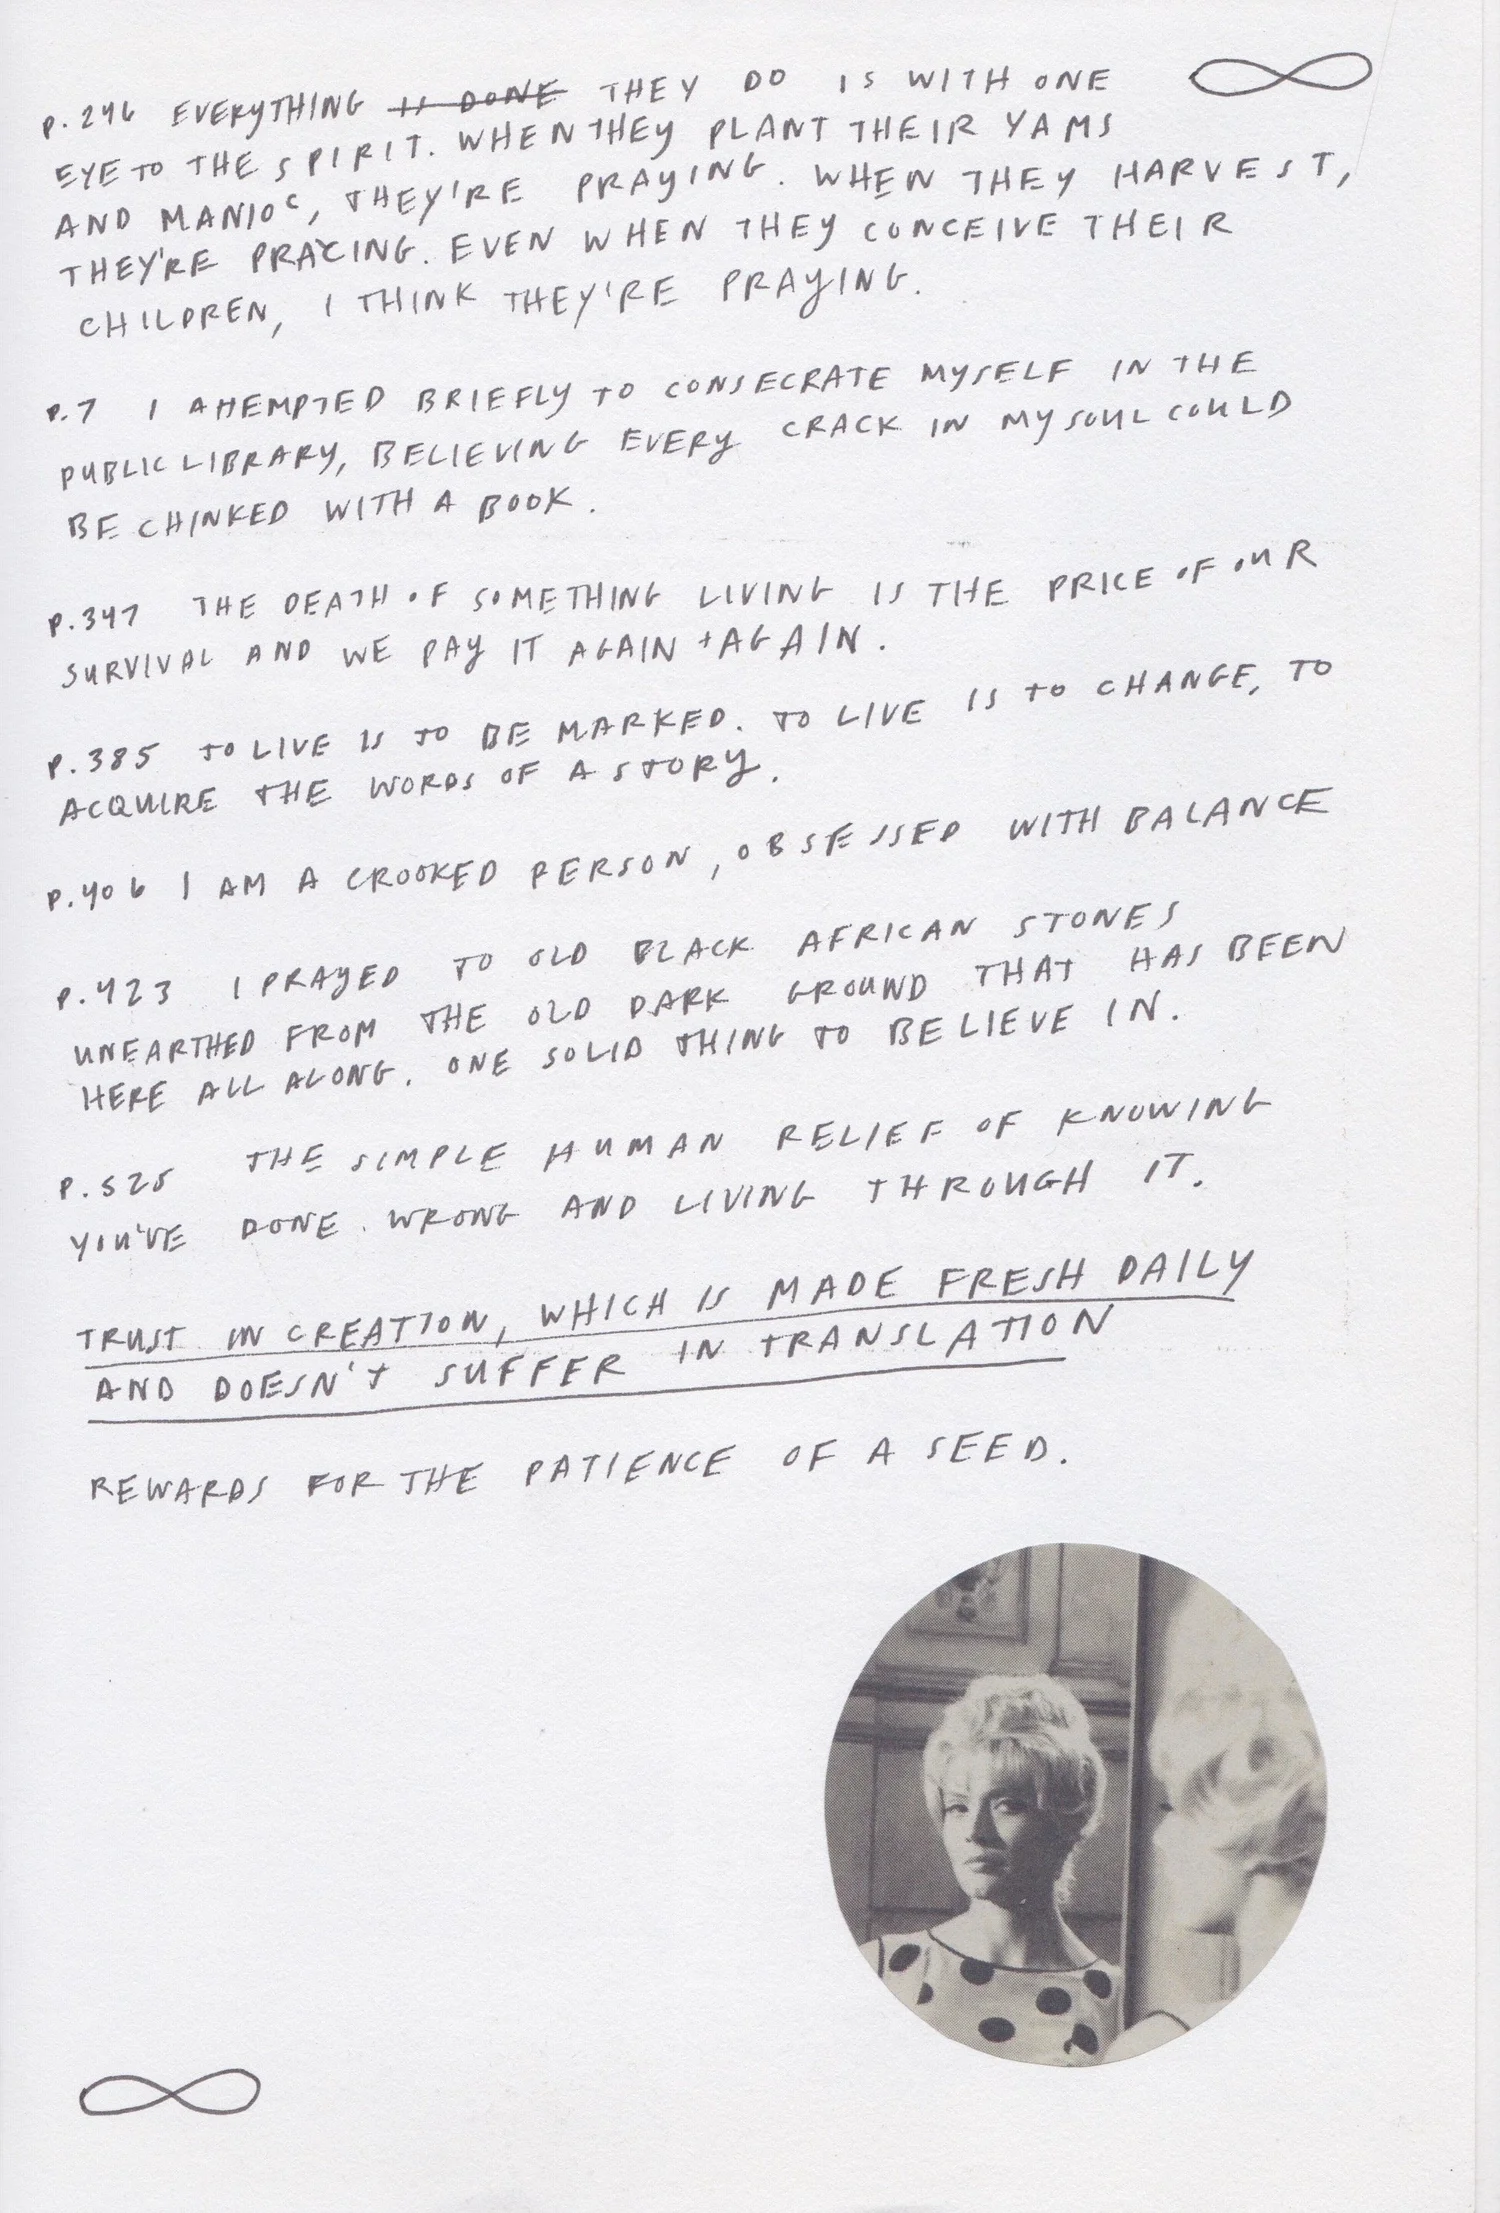 P.246 EVERYTHING IS DONE THEY DO IS WITH ONE
EYE TO THE SPIRIT. WHEN THEY PLANT THEIR YAMS
AND MANIOC, THEY'RE PRAYING. WHEN THEY HARVEST,
THEY'RE PRAYING. EVEN WHEN THEY CONCEIVE THEIR
CHILDREN, I THINK THEY'RE PRAYING.
P.7 I ATTEMPTED BRIEFLY TO CONSECRATE MYSELF IN THE
PUBLIC LIBRARY, BELIEVING EVERY CRACK IN MY SOUL COULD
BE CHINKED WITH A BOOK.
P.347 THE DEATH OF SOMETHING LIVING IS THE PRICE OF OUR
SURVIVAL AND WE PAY IT AGAIN + AGAIN.
P.385 TO LIVE IS TO BE MARKED. TO LIVE IS TO CHANGE, TO
ACQUIRE THE WORDS OF A STORY.
P.406 I AM A CROOKED PERSON, OBSESSED WITH BALANCE
P.423 I PRAYED TO OLD BLACK AFRICAN STONES
UNEARTHED FROM THE OLD DARK GROUND THAT HAS BEEN
HERE ALL ALONG. ONE SOLID THING TO BELIEVE IN.
P.525 THE SIMPLE HUMAN RELIEF OF KNOWING
YOU'VE DONE WRONG AND LIVING THROUGH IT.
TRUST IN CREATION, WHICH IS MADE FRESH DAILY
AND DOESN'T SUFFER IN TRANSLATION
REWARDS FOR THE PATIENCE OF A SEED.